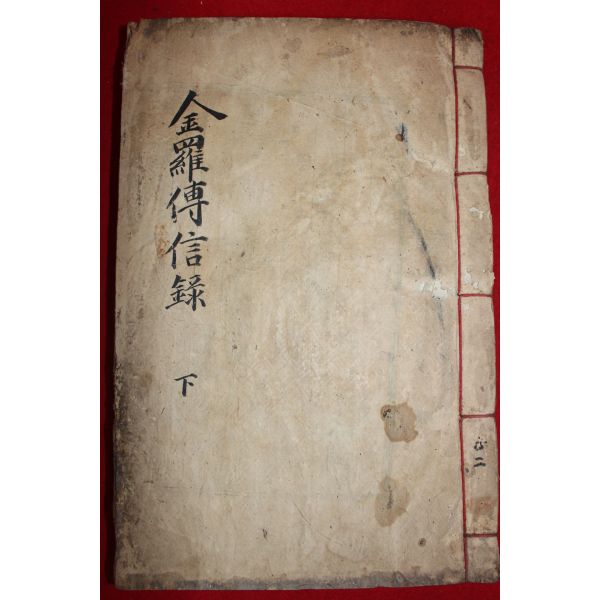 金羅傳信錄
下
共二